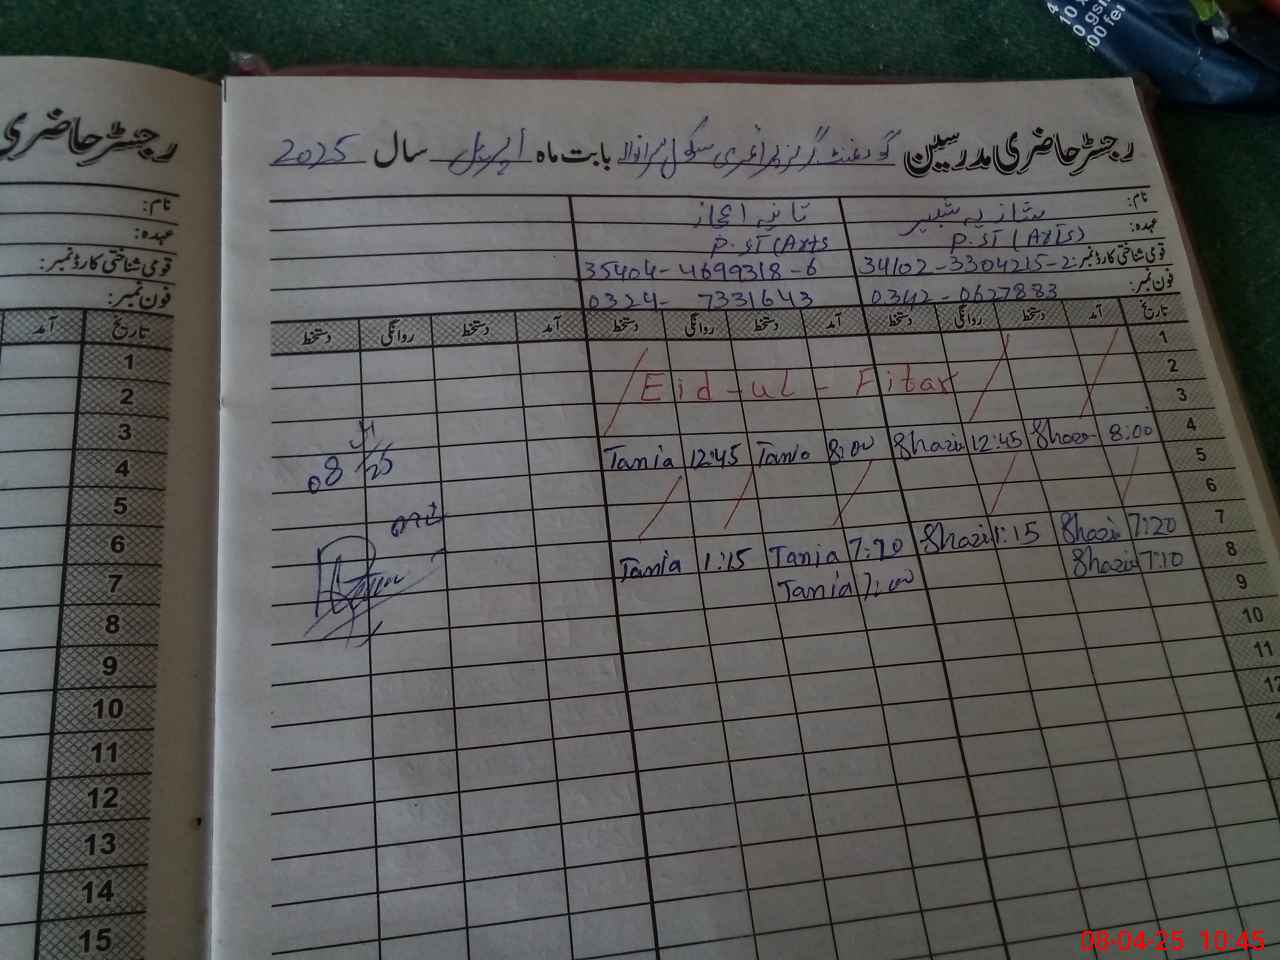 4
10 x
0 gsm
00 fe
رجسٹر حاضری
نام:
عہدہ:
قومی شناختی کارڈ نمبر:
فون نمبر:
تاریخ آمد
1
2
3
4
5
6
7
8
9
10
11
12
13
14
15
رجسٹر حاضری مدرسین گورنمنٹ گرلز پرائمری سکول بابت ماہ اپریل سال 2025
نام: شازیہ شبیر تانیہ اعجاز
عہدہ: P.S.T (Arts) P.S.T (Arts
قومی شناختی کارڈ نمبر: 34102-3304215-2 35404-4699318-6
فون نمبر: 0342-0627883 0324-7331643
تاریخ آمد دستخط روانگی دستخط آمد دستخط روانگی دستخط آمد دستخط روانگی دستخط
1
2 Eid-ul-Fitar
3
4 8:00 Shazi 12:45 Shazi 8:00 Tania 12:45 Tania
5
6
7 7:20 Shazi 1:15 Shazi 7:20 Tania 1:15 Tania
8 7:10 Shazi 7:00 Tania
9
10
11
12
08
25
08-04-25 10:45